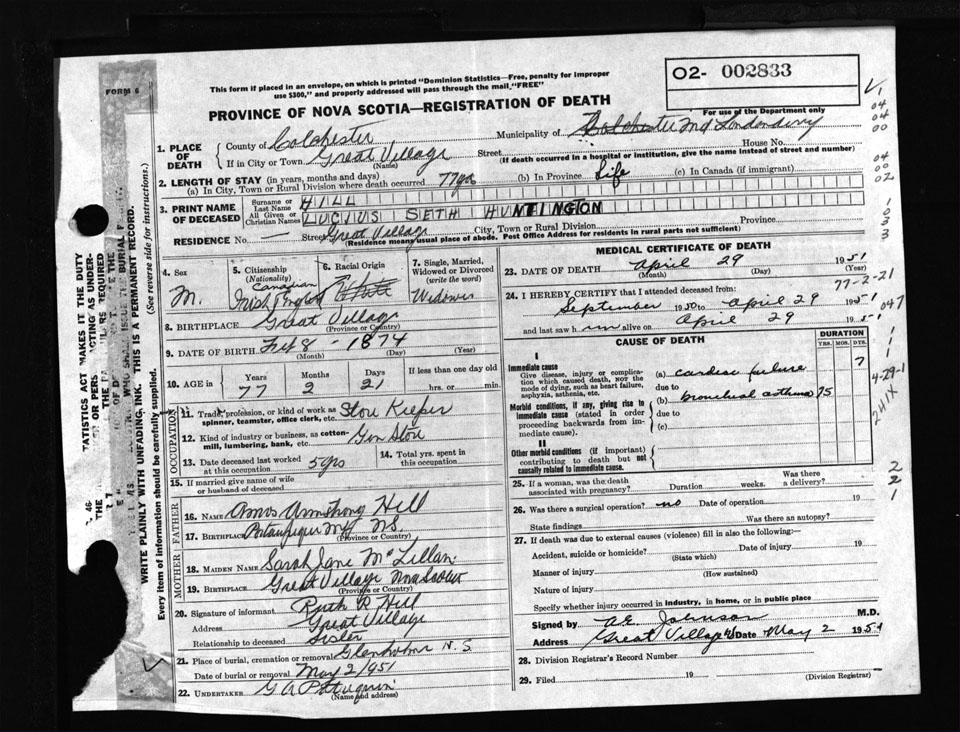 FORM 6
This form if placed in an envelope, on which is printed "Dominion Statistics—Free, penalty for improper
use $300," and properly addressed will pass through the mail "FREE"
O2- 002833
PROVINCE OF NOVA SCOTIA—REGISTRATION OF DEATH
For use of the Department only
1. PLACE OF DEATH
County of Colchester Municipality of Colchester Londonderry
If in City or Town Great Village (Name) Street House No.
(If death occurred in a hospital or institution, give the name instead of street and number)
2. LENGTH OF STAY (in years, months and days)
(a) In City, Town or Rural Division where death occurred 77 yrs (b) In Province Life (c) In Canada (if immigrant)
3. PRINT NAME OF DECEASED
Surname or Last Name HILL
All Given or Christian Names LUCIUS SETH HUNTINGTON
RESIDENCE No. — Street Great Village City, Town or Rural Division Province
(Residence means usual place of abode. Post Office Address for residents in rural parts not sufficient)
4. Sex M.
5. Citizenship (Nationality) Canadian
6. Racial Origin Irish English White
7. Single, Married, Widowed or Divorced (write the word) Widower
8. BIRTHPLACE Great Village
(Province or Country)
9. DATE OF BIRTH Feb 8 - 1874
(Month) (Day) (Year)
10. AGE in Years 77 Months 2 Days 21 If less than one day old hrs. or min.
OCCUPATION
11. Trade, profession, or kind of work as spinner, teamster, office clerk, etc. Store Keeper
12. Kind of industry or business, as cotton-mill, lumbering, bank, etc. Gen Store
13. Date deceased last worked at this occupation 5 yrs
14. Total yrs. spent in this occupation
15. If married give name of wife or husband of deceased
FATHER
16. NAME Amos Armstrong Hill
17. BIRTHPLACE N.S.
(Province or Country)
MOTHER
18. MAIDEN NAME Sarah Jane McLellan
19. BIRTHPLACE Great Village Nova Scotia
(Province or Country)
20. Signature of informant Ruth R Hill
Address Great Village
Relationship to deceased Sister
21. Place of burial, cremation or removal Glenholme N.S.
Date of burial or removal May 2/951
22. UNDERTAKER G A Patriquin
(Name and address)
MEDICAL CERTIFICATE OF DEATH
23. DATE OF DEATH April 29 1951
(Month) (Day) (Year)
77-2-21
24. I HEREBY CERTIFY that I attended deceased from:
September 1950 to April 29 1951
and last saw him alive on April 29 1951
CAUSE OF DEATH
DURATION
YRS. MOS. DYS.
I
Immediate cause
Give disease, injury or complication which caused death, not the mode of dying, such as heart failure, asphyxia, asthenia, etc.
(a) cardiac failure 7
due to
Morbid conditions, if any, giving rise to immediate cause (stated in order proceeding backwards from immediate cause).
(b) bronchial asthma 75
due to
(c)
II
Other morbid conditions (if important) contributing to death but not causally related to immediate cause.
25. If a woman, was the death associated with pregnancy? Duration weeks. Was there a delivery?
26. Was there a surgical operation? no Date of operation 19
State findings Was there an autopsy?
27. If death was due to external causes (violence) fill in also the following:
Accident, suicide or homicide? Date of injury 19
(State which)
Manner of injury
(How sustained)
Nature of injury
Specify whether injury occurred in industry, in home, or in public place
Signed by A.E. Johnson M.D.
Address Great Village Date May 2 1951
28. Division Registrar's Record Number
29. Filed 19
(Division Registrar)
04
04
00
04
00
02
1
0
3
3
047
4-29-1
241X
2
2
1
WRITE PLAINLY WITH UNFADING INK. THIS IS A PERMANENT RECORD.
Every item of information should be carefully supplied.
(See reverse side for instructions.)